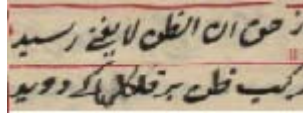 ز حق ان الظن لا یغنے رسید
مرکب ظن بر فلکها کے دوید